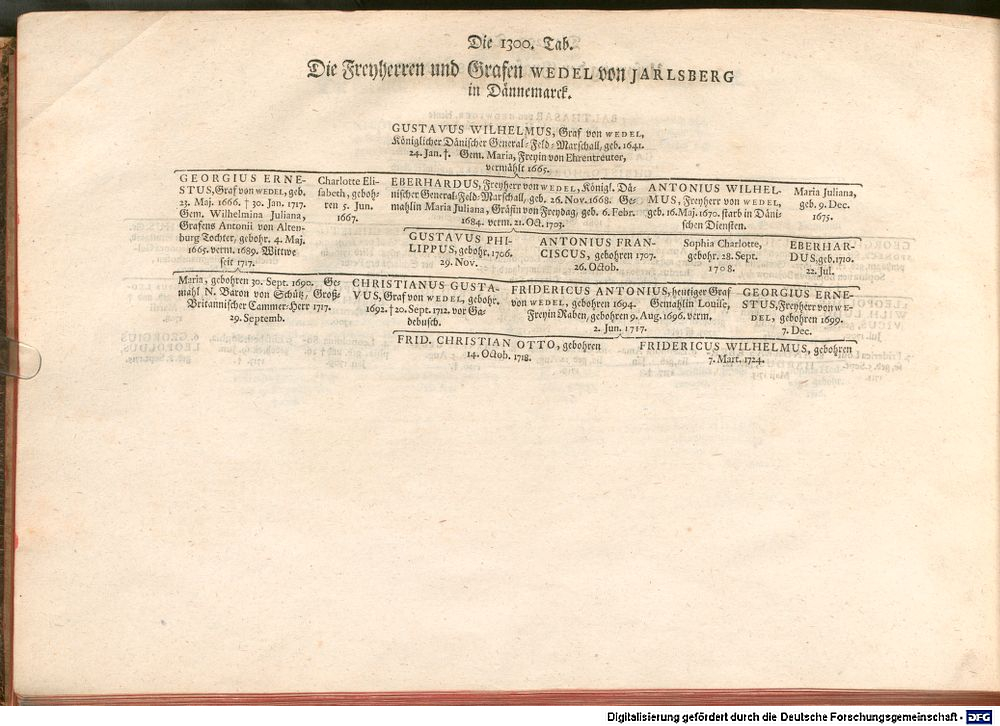 Die 1300. Tab.
Die Freyherren und Grafen WEDEL von JARLSBERG
in Dännemarck.
GUSTAVUS WILHELMUS, Graf von WEDEL,
Königlicher Dänischer General-Feld-Marschall, geb. 1641.
24. Jan. †. Gem. Maria, Freyin von Ehrentreuter,
vermählt 1665.
GEORGIUS ERNE-
STUS, Graf von WEDEL, geb.
23. Maj. 1666. † 30. Jan. 1717.
Gem. Wilhelmina Juliana,
Grafens Antonii von Alten-
burg Tochter, gebohr. 4. Maj.
1665. verm. 1689. Wittwe
seit 1717.
Charlotte Eli-
sabeth, geboh-
ren 5. Jun.
1667.
EBERHARDUS, Freyherr von WEDEL, Königl. Dä-
nischer General-Feld-Marschall, geb. 26. Nov. 1668. Ge-
mahlin Maria Juliana, Gräfin von Freydag, geb. 6. Febr.
1684. verm. 21. Oct. 1703.
ANTONIUS WILHEL-
MUS, Freyherr von WEDEL,
geb. 16. Maj. 1670. starb in Däni-
schen Diensten.
Maria Juliana,
geb. 9. Dec.
1675.
GUSTAVUS PHI-
LIPPUS, gebohr. 1706.
29. Nov.
ANTONIUS FRAN-
CISCUS, gebohren 1707.
26. Octob.
Sophia Charlotte,
gebohr. 28. Sept.
1708.
EBERHAR-
DUS, geb. 1710.
22. Jul.
Maria, gebohren 30. Sept. 1690. Ge-
mahl N. Baron von Schütz, Groß-
Britannischer Cammer-Herr 1717.
29. Septemb.
CHRISTIANUS GUSTA-
VUS, Graf von WEDEL, gebohr.
1692. † 20. Sept. 1712. vor Ga-
debusch.
FRIDERICUS ANTONIUS, heutiger Graf
von WEDEL, gebohren 1694. Gemahlin Louise,
Freyin Raben, gebohren 9. Aug. 1696. verm.
2. Jun. 1717.
GEORGIUS ERNE-
STUS, Freyherr von WE-
DEL, gebohren 1699.
7. Dec.
FRID. CHRISTIAN OTTO, gebohren
14. Octob. 1718.
FRIDERICUS WILHELMUS, gebohren
7. Mart. 1724.
Digitalisierung gefördert durch die Deutsche Forschungsgemeinschaft - DFG